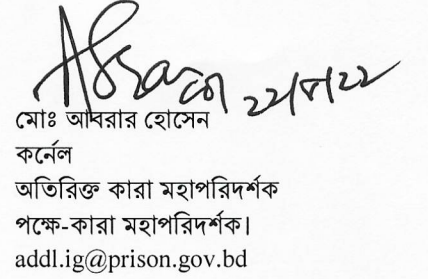 ২২/৮/২২
মোঃ আবরার হোসেন
কর্নেল
অতিরিক্ত কারা মহাপরিদর্শক
পক্ষে-কারা মহাপরিদর্শক।
addl.ig@prison.gov.bd